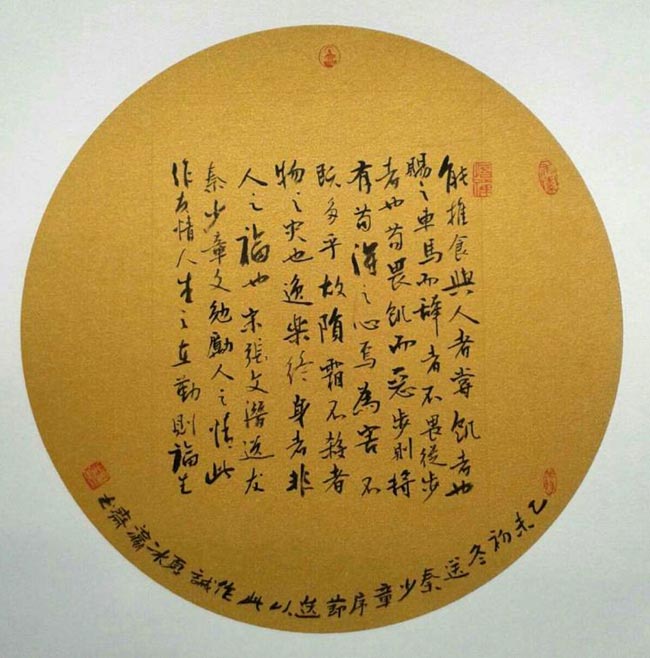 能推食與人者嘗飢者也
賜之車馬而辭者不畏徒步
者也苟畏飢而惡步則將
有苟得之心焉為害不
既多乎故隕霜不殺者
物之灾也逸樂終身者非
人之福也宋張文潛送友
秦少章文勉勵人之情此
作友情人生之在勤則福生
乙未初冬送秦少章序節送以此